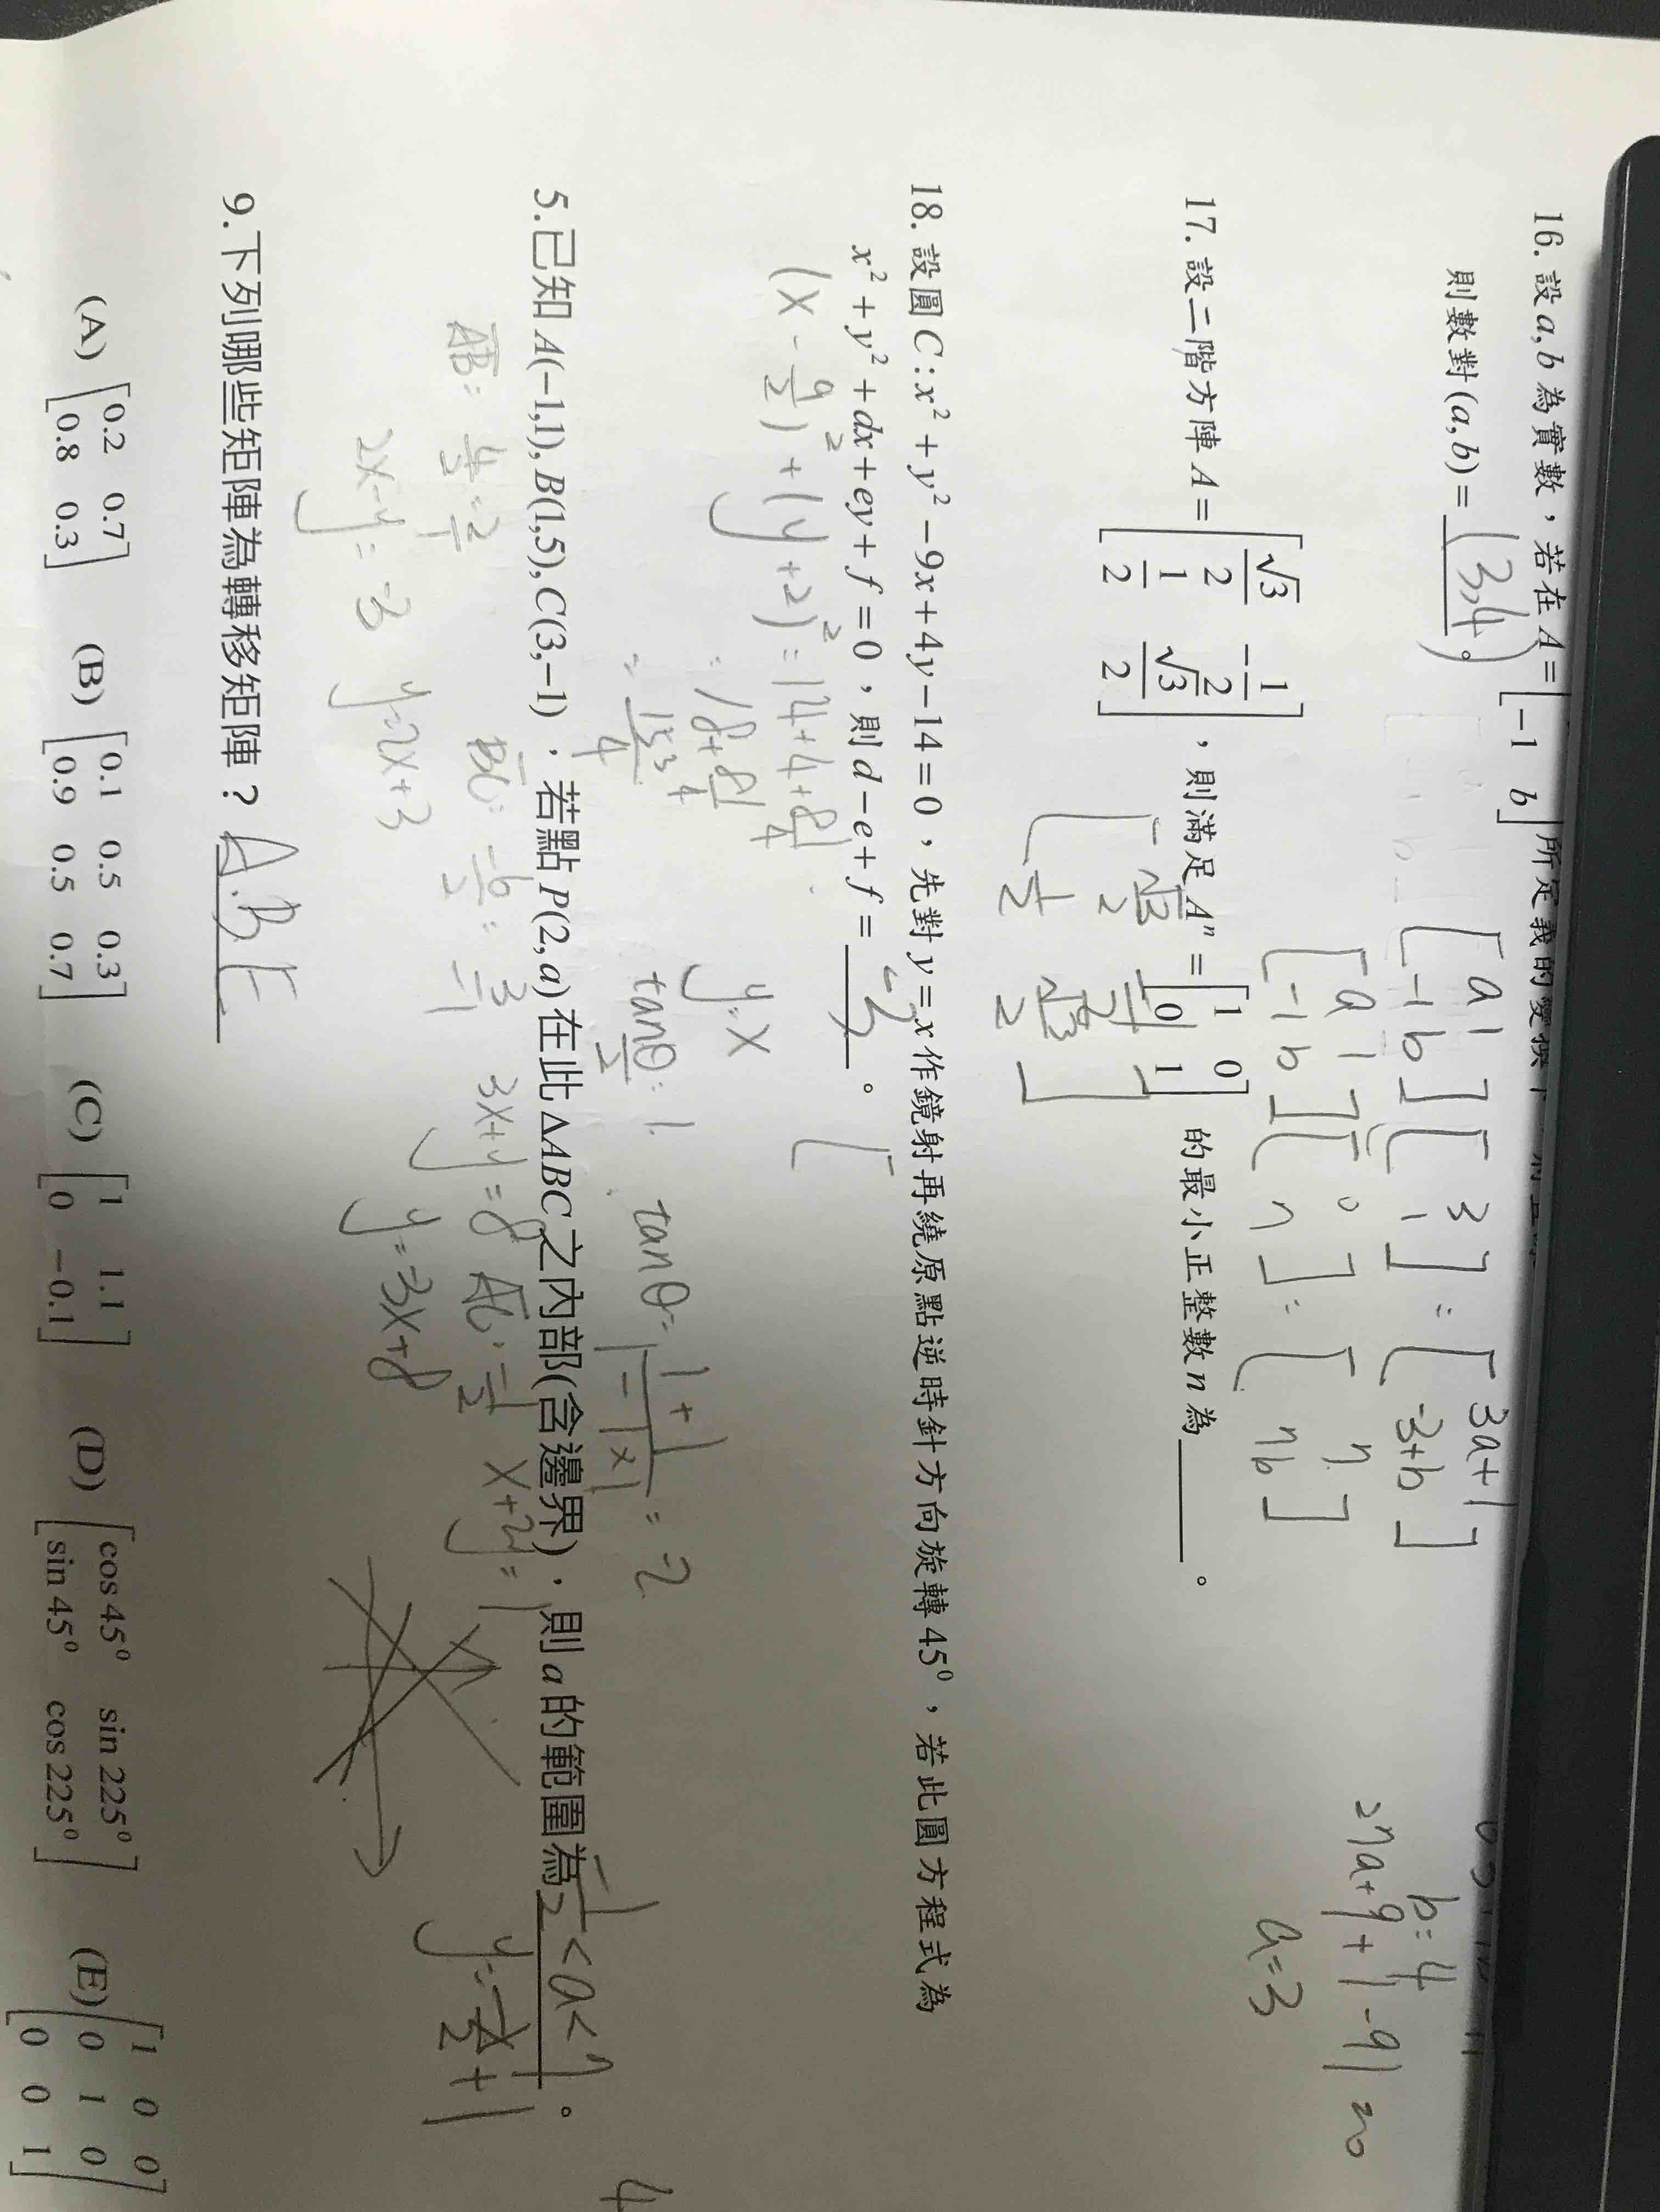 16. 設 a,b 為實數，若在 A = [ -1 b ] 所定義的變換下
則數對 (a,b) = (3,4)。
[ a 1
-1 b ] [ 3
1 ] = [ 3a+1
-3+b ]
[ a 1
-1 b ] [ 0
n ] = [ n
nb ]
b=4
a=3
17. 設二階方陣 A = [ √3/2 -1/2
1/2 √3/2 ]，則滿足 Aⁿ = [ 1 0
0 1 ] 的最小正整數 n 為____。
18. 設圓 C : x² + y² - 9x + 4y - 14 = 0，先對 y = x 作鏡射再繞原點逆時針方向旋轉 45⁰，若此圓方程式為
x² + y² + dx + ey + f = 0，則 d - e + f = ____。
(x - 9/2)² + (y+2)² = 14+4+81/4
= 18+81/4
= 153/4
y=x
tan θ/2 = 1
5.已知 A(-1,1), B(1,5), C(3,-1)，若點 P(2,a) 在此 △ABC 之內部(含邊界)，則 a 的範圍為 -1/2 < a < 2。
AB: 4/2 = 2/1
BC: -6/2 = -3/1
3x+y=8
AC: -1/2
x+2y=1
2x-y=-3
y=2x+3
y=-3x+8
y=-x/2+1/2
9.下列哪些矩陣為轉移矩陣？ A.B.E
(A) [ 0.2 0.7
0.8 0.3 ] (B) [ 0.1 0.5 0.3
0.9 0.5 0.7 ] (C) [ 1 1.1
0 -0.1 ] (D) [ cos 45⁰ sin 225⁰
sin 45⁰ cos 225⁰ ] (E) [ 1 0 0
0 1 0
0 0 1 ]